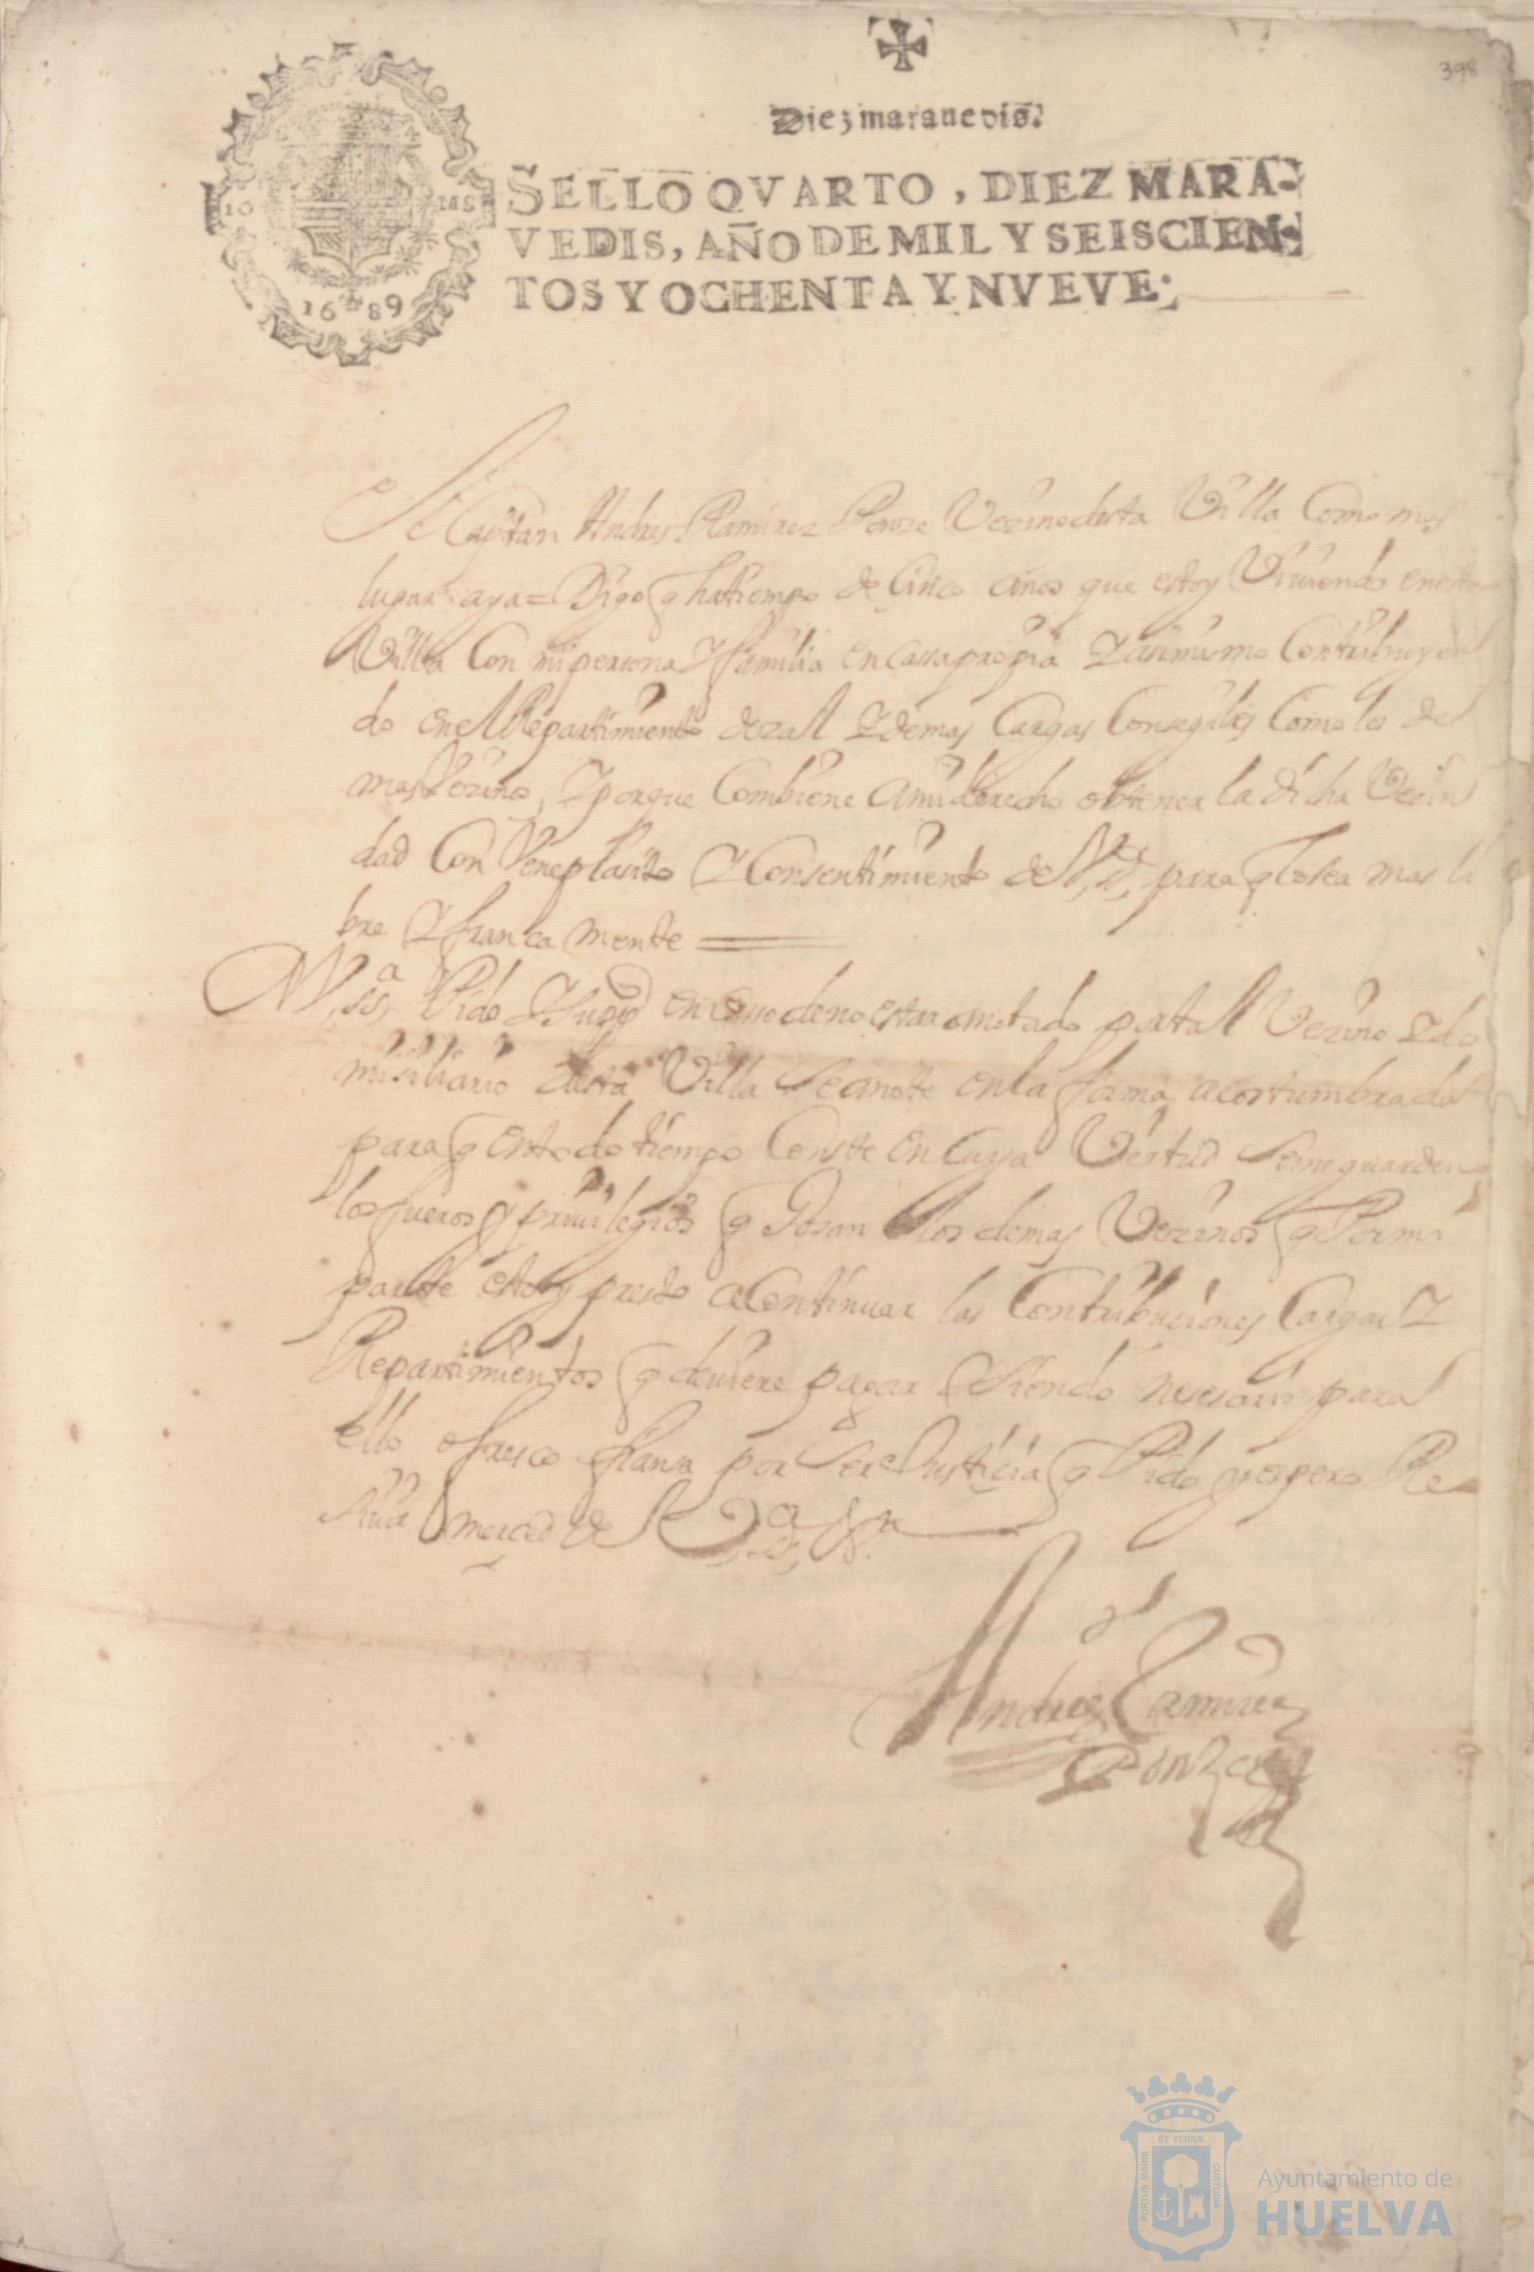 398
Diez marauedis.
SELLO QVARTO, DIEZ MARA-
VEDIS, AÑO DE MIL Y SEISCIEN-
TOS Y OCHENTA Y NVEVE.
10 MS
1689
El Capitan Andres Ramirez Ponze Vezino desta Villa Como mas
lugar aya = Digo q ha tiempo de Cinco años que estoy Viuiendo en esta
Villa Con mi persona Y familia en Cassa propia Y asimismo Contribuyen
do en el Repartimiento de zal Y demas Cargas Consegiles Como los de
mas Vezinos, Y porque Combiene a mi derecho obtener la dicha Vezin
dad Con Veneplasito Y Consentimiento de para q lo sea mas li
bre Y franca mente
A Pido Y Supco en Casso de no estar anotado por tal Vezino Y do
misiliario desta Villa Se anote en la forma acostumbrada
para q en todo tiempo Conste en Cuya Vertud Se me guarden
los fueros y priuilegios q Gosan los demas Vezinos q Por mi
parte estoy presto a Continuar las Contribuciones Cargas Y
Repartimientos q deuiere pagar Y Siendo nesesario para
ello ofresco fiansa por Ser Justicia q Pido y espero Re
seuir merced de
Andres Ramirez
Ponze
ET TERRÆ
PORTUS MARIS
CUSTODIA
Ayuntamiento de
HUELVA